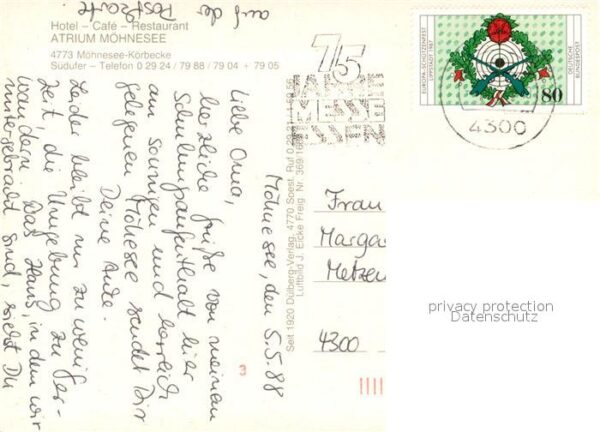 Hotel – Café – Restaurant
ATRIUM MÖHNESEE
4773 Möhnesee-Körbecke
Südufer – Telefon 0 29 24 / 79 88 / 79 04 + 79 05
Möhnesee, den 5.5.88
Liebe Oma,
herzliche Grüße von meinem
Schulungsaufenthalt hier
am sonnigen und herrlich
gelegenen Möhesee sendet Dir
Deine Ante.
Leider bleibt nur zu weniger
Zeit, die Umgebung zu er-
wandern. Das Haus, in dem wir
untergebracht sind, siehst Du
auf der
Postkarte.
Seit 1920 Dülberg-Verlag, 4770 Soest, Ruf 0 29 21
Luftbild J. Eicke Freig. Nr. 369/
75
JAHRE
MESSE
ESSEN
EUROPA-SCHÜTZENFEST
LIPPSTADT 1987
DEUTSCHE
BUNDESPOST
80
4300
Frau
Marga
Metzen
4300
3
privacy protection
Datenschutz